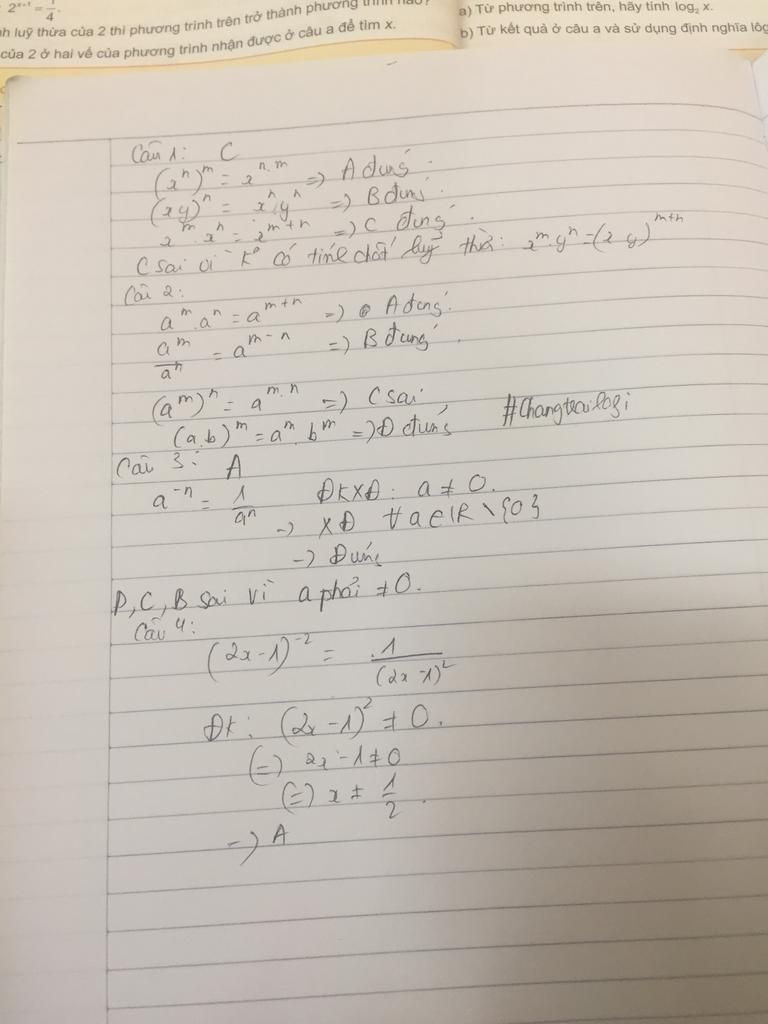 2ˣ⁺¹ = 1/4.
nh luỹ thừa của 2 thì phương trình trên trở thành phương trình nào?
của 2 ở hai vế của phương trình nhận được ở câu a để tìm x.
a) Từ phương trình trên, hãy tính log₂ x.
b) Từ kết quả ở câu a và sử dụng định nghĩa lôg
Câu 1: C
(xⁿ)ᵐ = xⁿ·ᵐ => A đúng.
(xy)ⁿ = xⁿ.yⁿ => B đúng.
xᵐ.xⁿ = xᵐ⁺ⁿ => C đúng.
C sai vì k° có tính chất luỹ thừa: xᵐ.yⁿ = (x.y)ᵐ⁺ⁿ
Câu 2:
aᵐ.aⁿ = aᵐ⁺ⁿ => A đúng.
aᵐ/aⁿ = aᵐ⁻ⁿ => B đúng.
(aᵐ)ⁿ = aᵐ·ⁿ => C sai
(a.b)ᵐ = aᵐ.bᵐ => D đúng
#Changtrailogi
Câu 3: A
a⁻ⁿ = 1/aⁿ ĐKXĐ: a ≠ 0.
-> XĐ ∀a∈ℝ\{0}
-> Đúng
D, C, B sai vì a phải ≠ 0.
Câu 4:
(2x-1)⁻² = 1/(2x-1)²
ĐK: (2x-1)² ≠ 0.
(=) 2x-1 ≠ 0
(=) x ≠ 1/2.
-> A